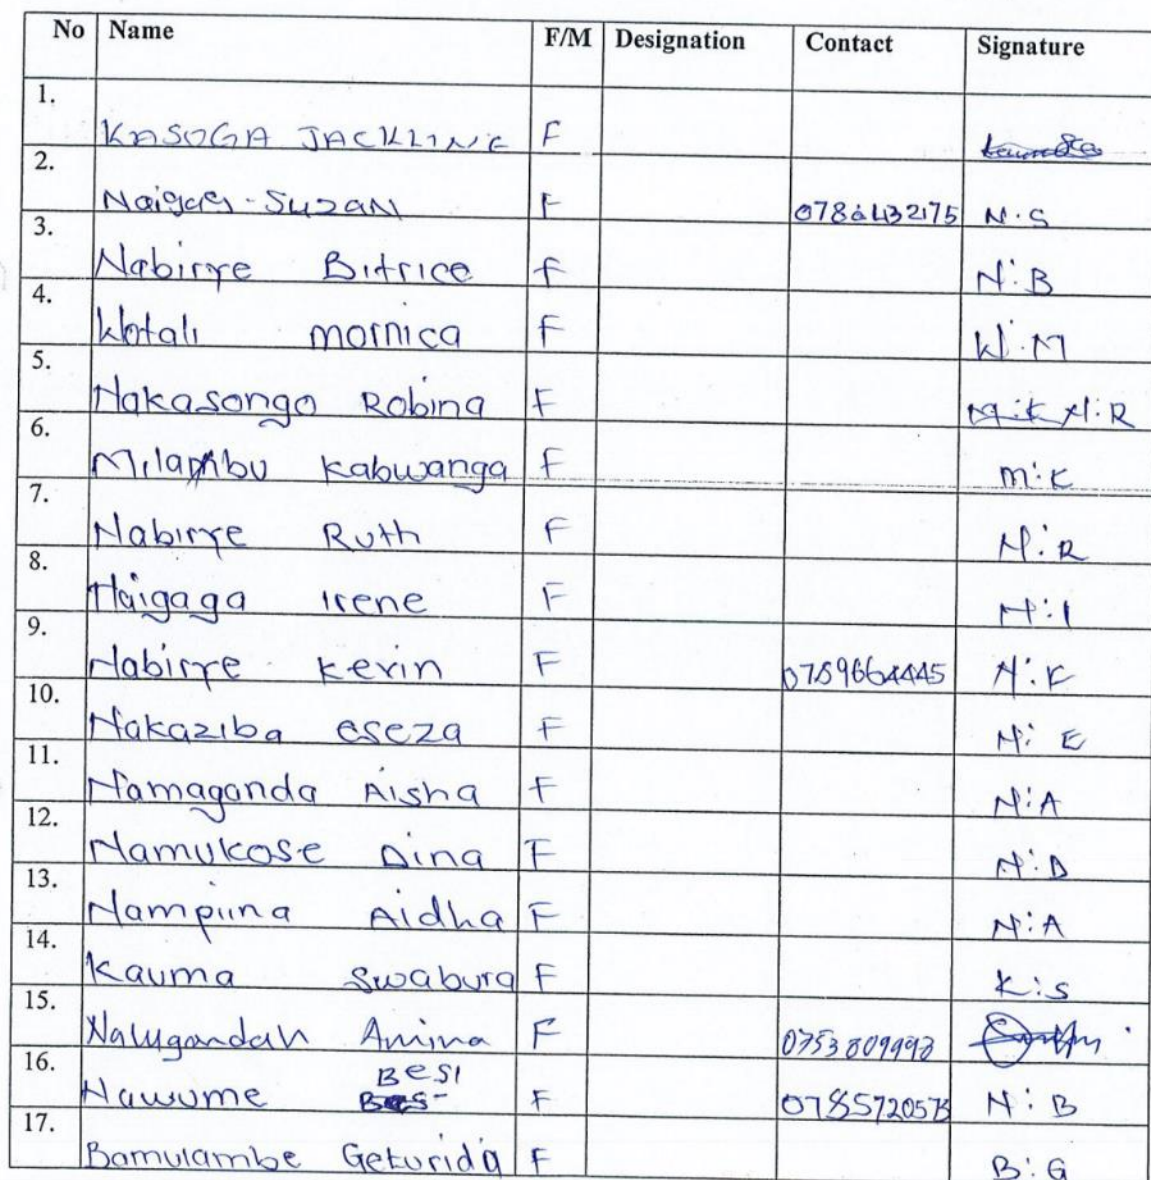 No Name F/M Designation Contact Signature
1. KASOGA JACKLINE F
2. Naigaga - Suzan F 0786432175 N.S
3. Nabirye Bitrice f N:B
4. Wotali mornica F W.M
5. Nakasongo Robina F N:R
6. Milambu Kabwanga F m:K
7. Nabirye Ruth F N:R
8. Naigaga Irene F N:I
9. Nabirye Kevin F 0789664445 N:K
10. Nakaziba eseza F N: E
11. Namaganda Aisha F N:A
12. Namukose Dina F N:D
13. Nampiina Aidha F N:A
14. Kauma Swabura F K:S
15. Nalugandah Amina F 0753809993
16. Nawume Besi F 0785720573 N:B
17. Bamulambe Geturida F B:G